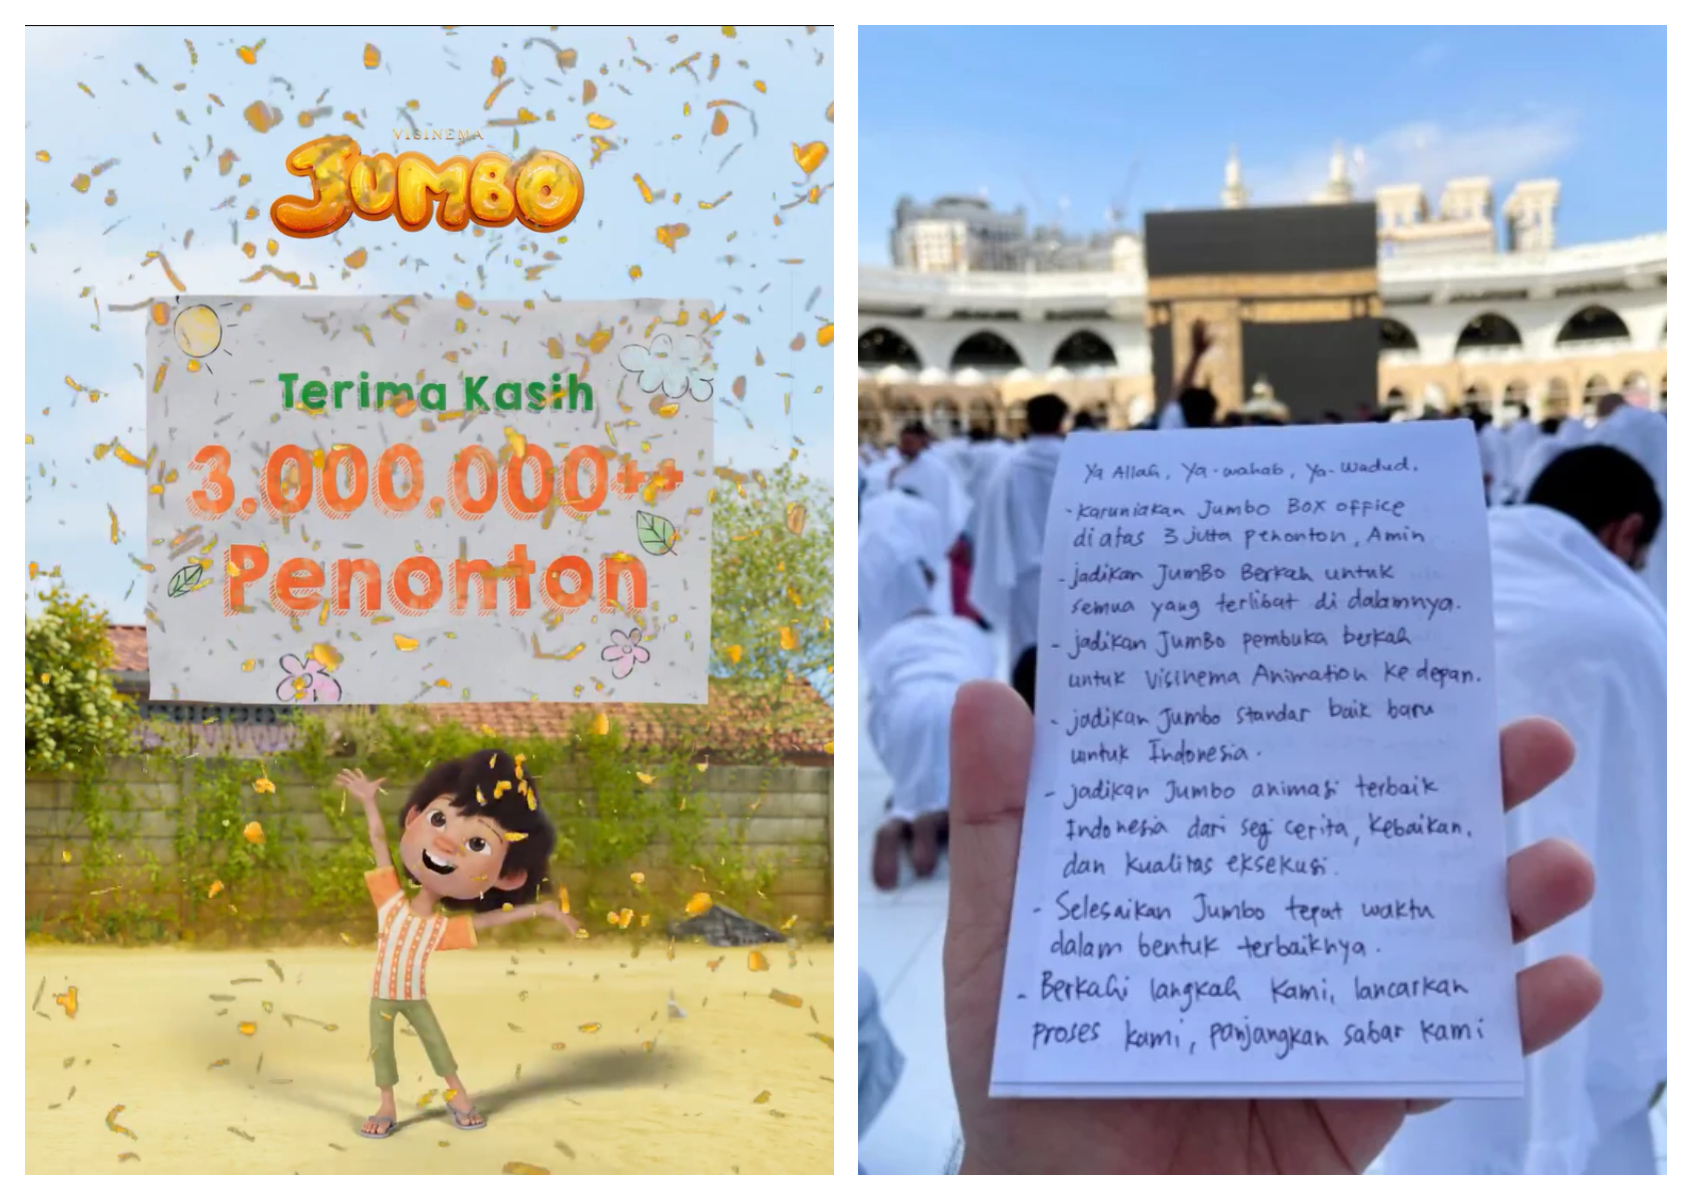 VISINEMA
JUMBO
Terima Kasih
3.000.000++
Penonton
Ya Allah, Ya-wahab, Ya-Wadud.
- Karuniakan Jumbo Box office
diatas 3 juta penonton, Amin
- jadikan JumBo Berkah untuk
semua yang terlibat di dalamnya.
- jadikan JumBo pembuka berkah
untuk Visinema Animation ke depan.
- jadikan Jumbo standar baik baru
untuk Indonesia.
- jadikan Jumbo animasi terbaik
Indonesia dari segi cerita, kebaikan,
dan kualitas eksekusi.
- Selesaikan Jumbo tepat waktu
dalam bentuk terbaiknya.
- Berkahi langkah kami, lancarkan
proses kami, panjangkan sabar kami